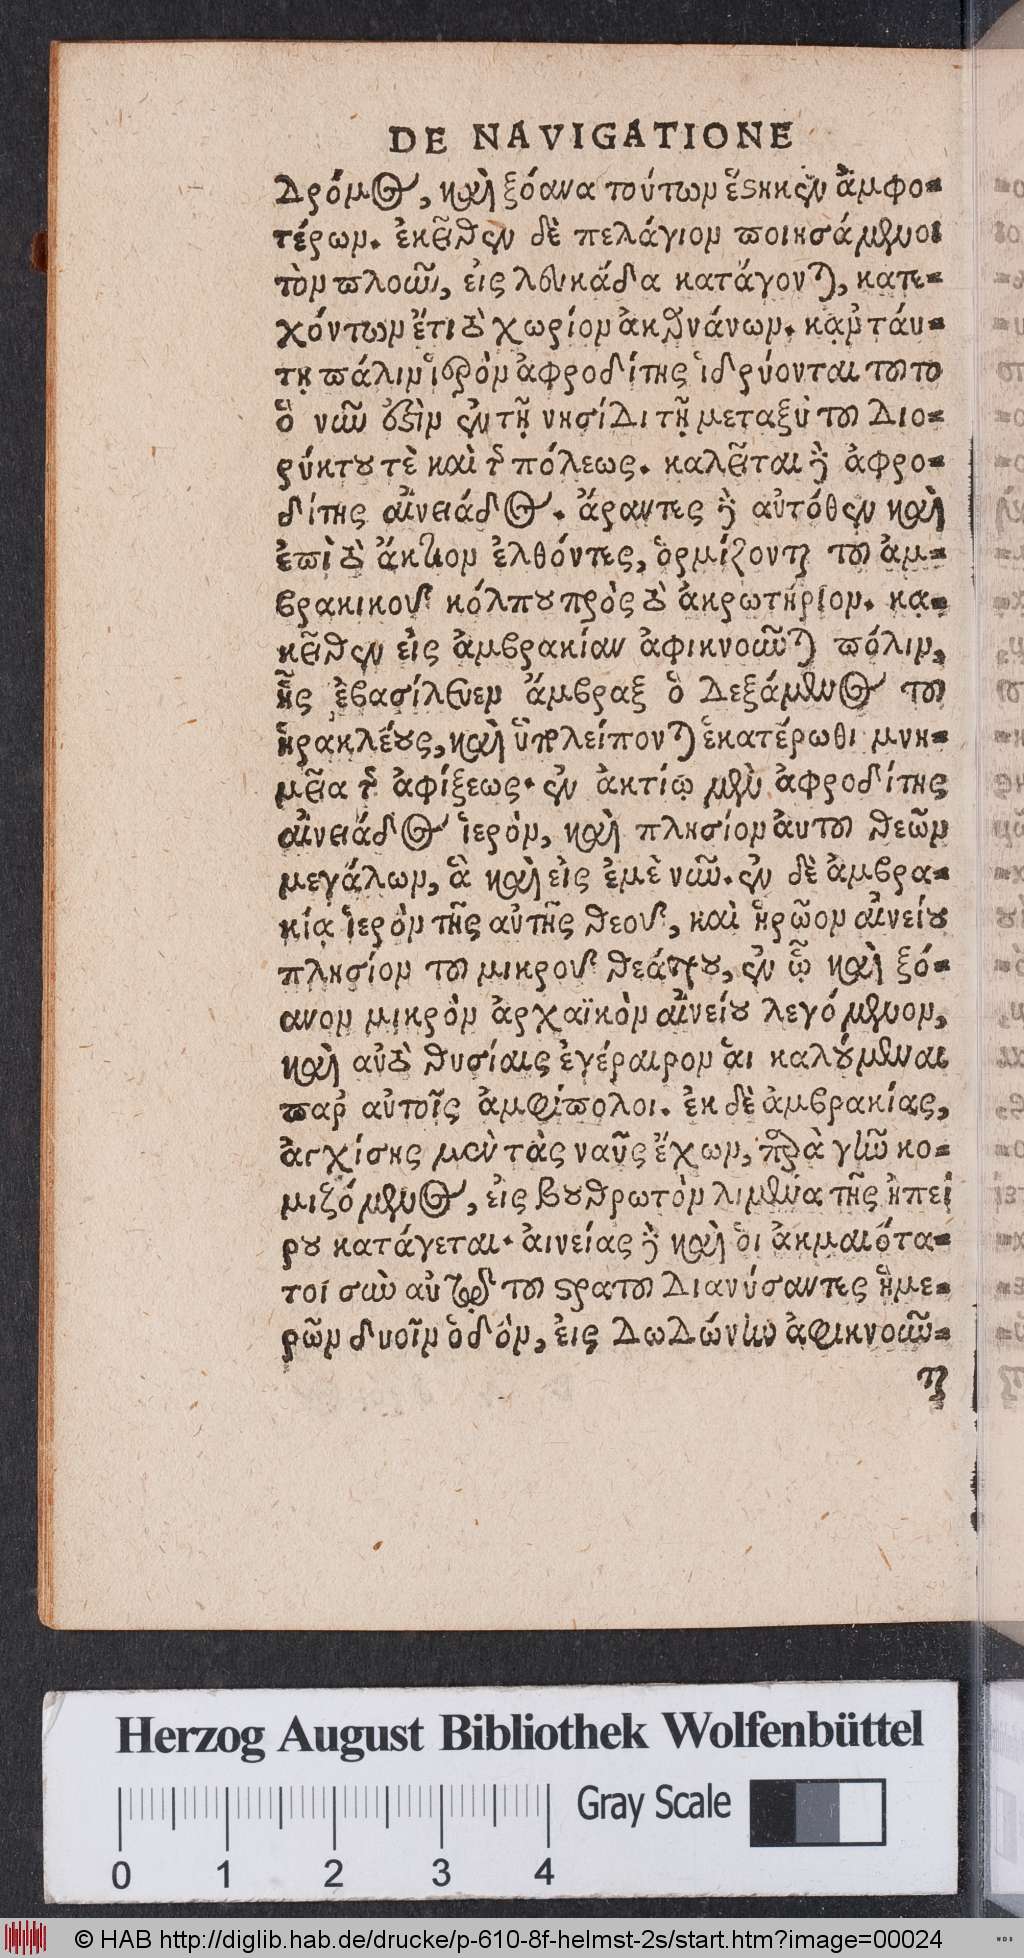 DE NAVIGATIONE
δρόμος, καὶ ξόανα τούτωμ ἕστηκεν ἀμφο=
τέρωμ. ἐκεῖθεν δὲ πελάγιομ ποιησάμενοι
τὸμ πλοῦν, εἰς λευκάδα κατάγονται, κατε=
χόντωμ ἔτι τὸ χωρίομ ἀκαρνάνωμ. κᾀμ τάυ=
τῃ πάλιμ ἱερὸμ ἀφροδίτης ἱδρύονται τοῦτο
ὃ νῦν ἐστὶμ ἐν τῇ νησίδι τῇ μεταξὺ τοῦ Διο=
ρύκτου τὲ καὶ τῆς πόλεως. καλεῖται δὲ ἀφρο=
δίτης αἰνειάδος. ἄραντες δὲ αὐτόθεν καὶ
ἐπὶ τὸ ἄκτιομ ἐλθόντες, ὁρμίζονται τοῦ ἀμ=
βρακικοῦ κόλπου πρὸς τὸ ἀκρωτήριομ. κᾀ=
κεῖθεν εἰς ἀμβρακίαν ἀφικνοῦνται πόλιμ,
ἧς ἐβασίλευεμ ἄμβραξ ὁ Δεξάμενος τοῦ
ἡρακλέους, καὶ ὑπολείπονται ἑκατέρωθι μνη=
μεῖα τῆς ἀφίξεως. ἐν ἀκτίῳ μὲν ἀφροδίτης
αἰνειάδος ἱερὸμ, καὶ πλησίομ ἀυτοῦ θεῶμ
μεγάλωμ, ἃ καὶ εἰς ἐμὲ νῦν. ἐν δὲ ἀμβρα=
κίᾳ ἱερὸμ τῆς αὐτῆς θεοῦ, καὶ ἡρῶομ αἰνείου
πλησίομ τοῦ μικροῦ θεάτρου, ἐν ᾧ καὶ ξό=
ανομ μικρὸμ ἀρχαϊκὸμ αἰνείου λεγόμενομ,
καὶ αὐτὸ θυσίαις ἐγέραιρομ ἁι καλούμεναι
παρ αὐτοῖς ἀμφίπολοι. ἐκ δὲ ἀμβρακίας,
ἀγχίσης μὲν τὰς ναῦς ἔχωμ, παρὰ γῆν κο=
μιζόμενος, εἰς βουθρωτὸμ λιμένα τῆς ἠπεί
ρου κατάγεται. ἀινείας δὲ καὶ ὁι ἀκμαιότα=
τοι σὺν αὐτῷ τοῦ στρατοῦ Διανύσαντες ἡμε=
ρῶμ δυοῖμ ὁδὸμ, ἐις Δωδώνην ἀφικνοῦν=
ται
Herzog August Bibliothek Wolfenbüttel
Gray Scale
0 1 2 3 4
© HAB http://diglib.hab.de/drucke/p-610-8f-helmst-2s/start.htm?image=00024